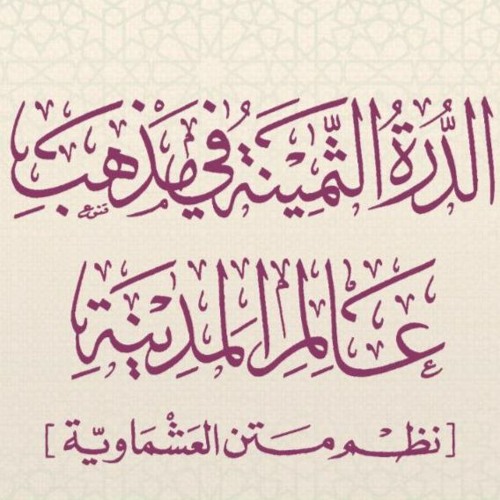 الدُّرَةُ الثَّمِيْنَةُ فِي مَذْهَبِ
عَالِمِ المَدِيْنَةِ
[نظم متن العشْمَاويّة]